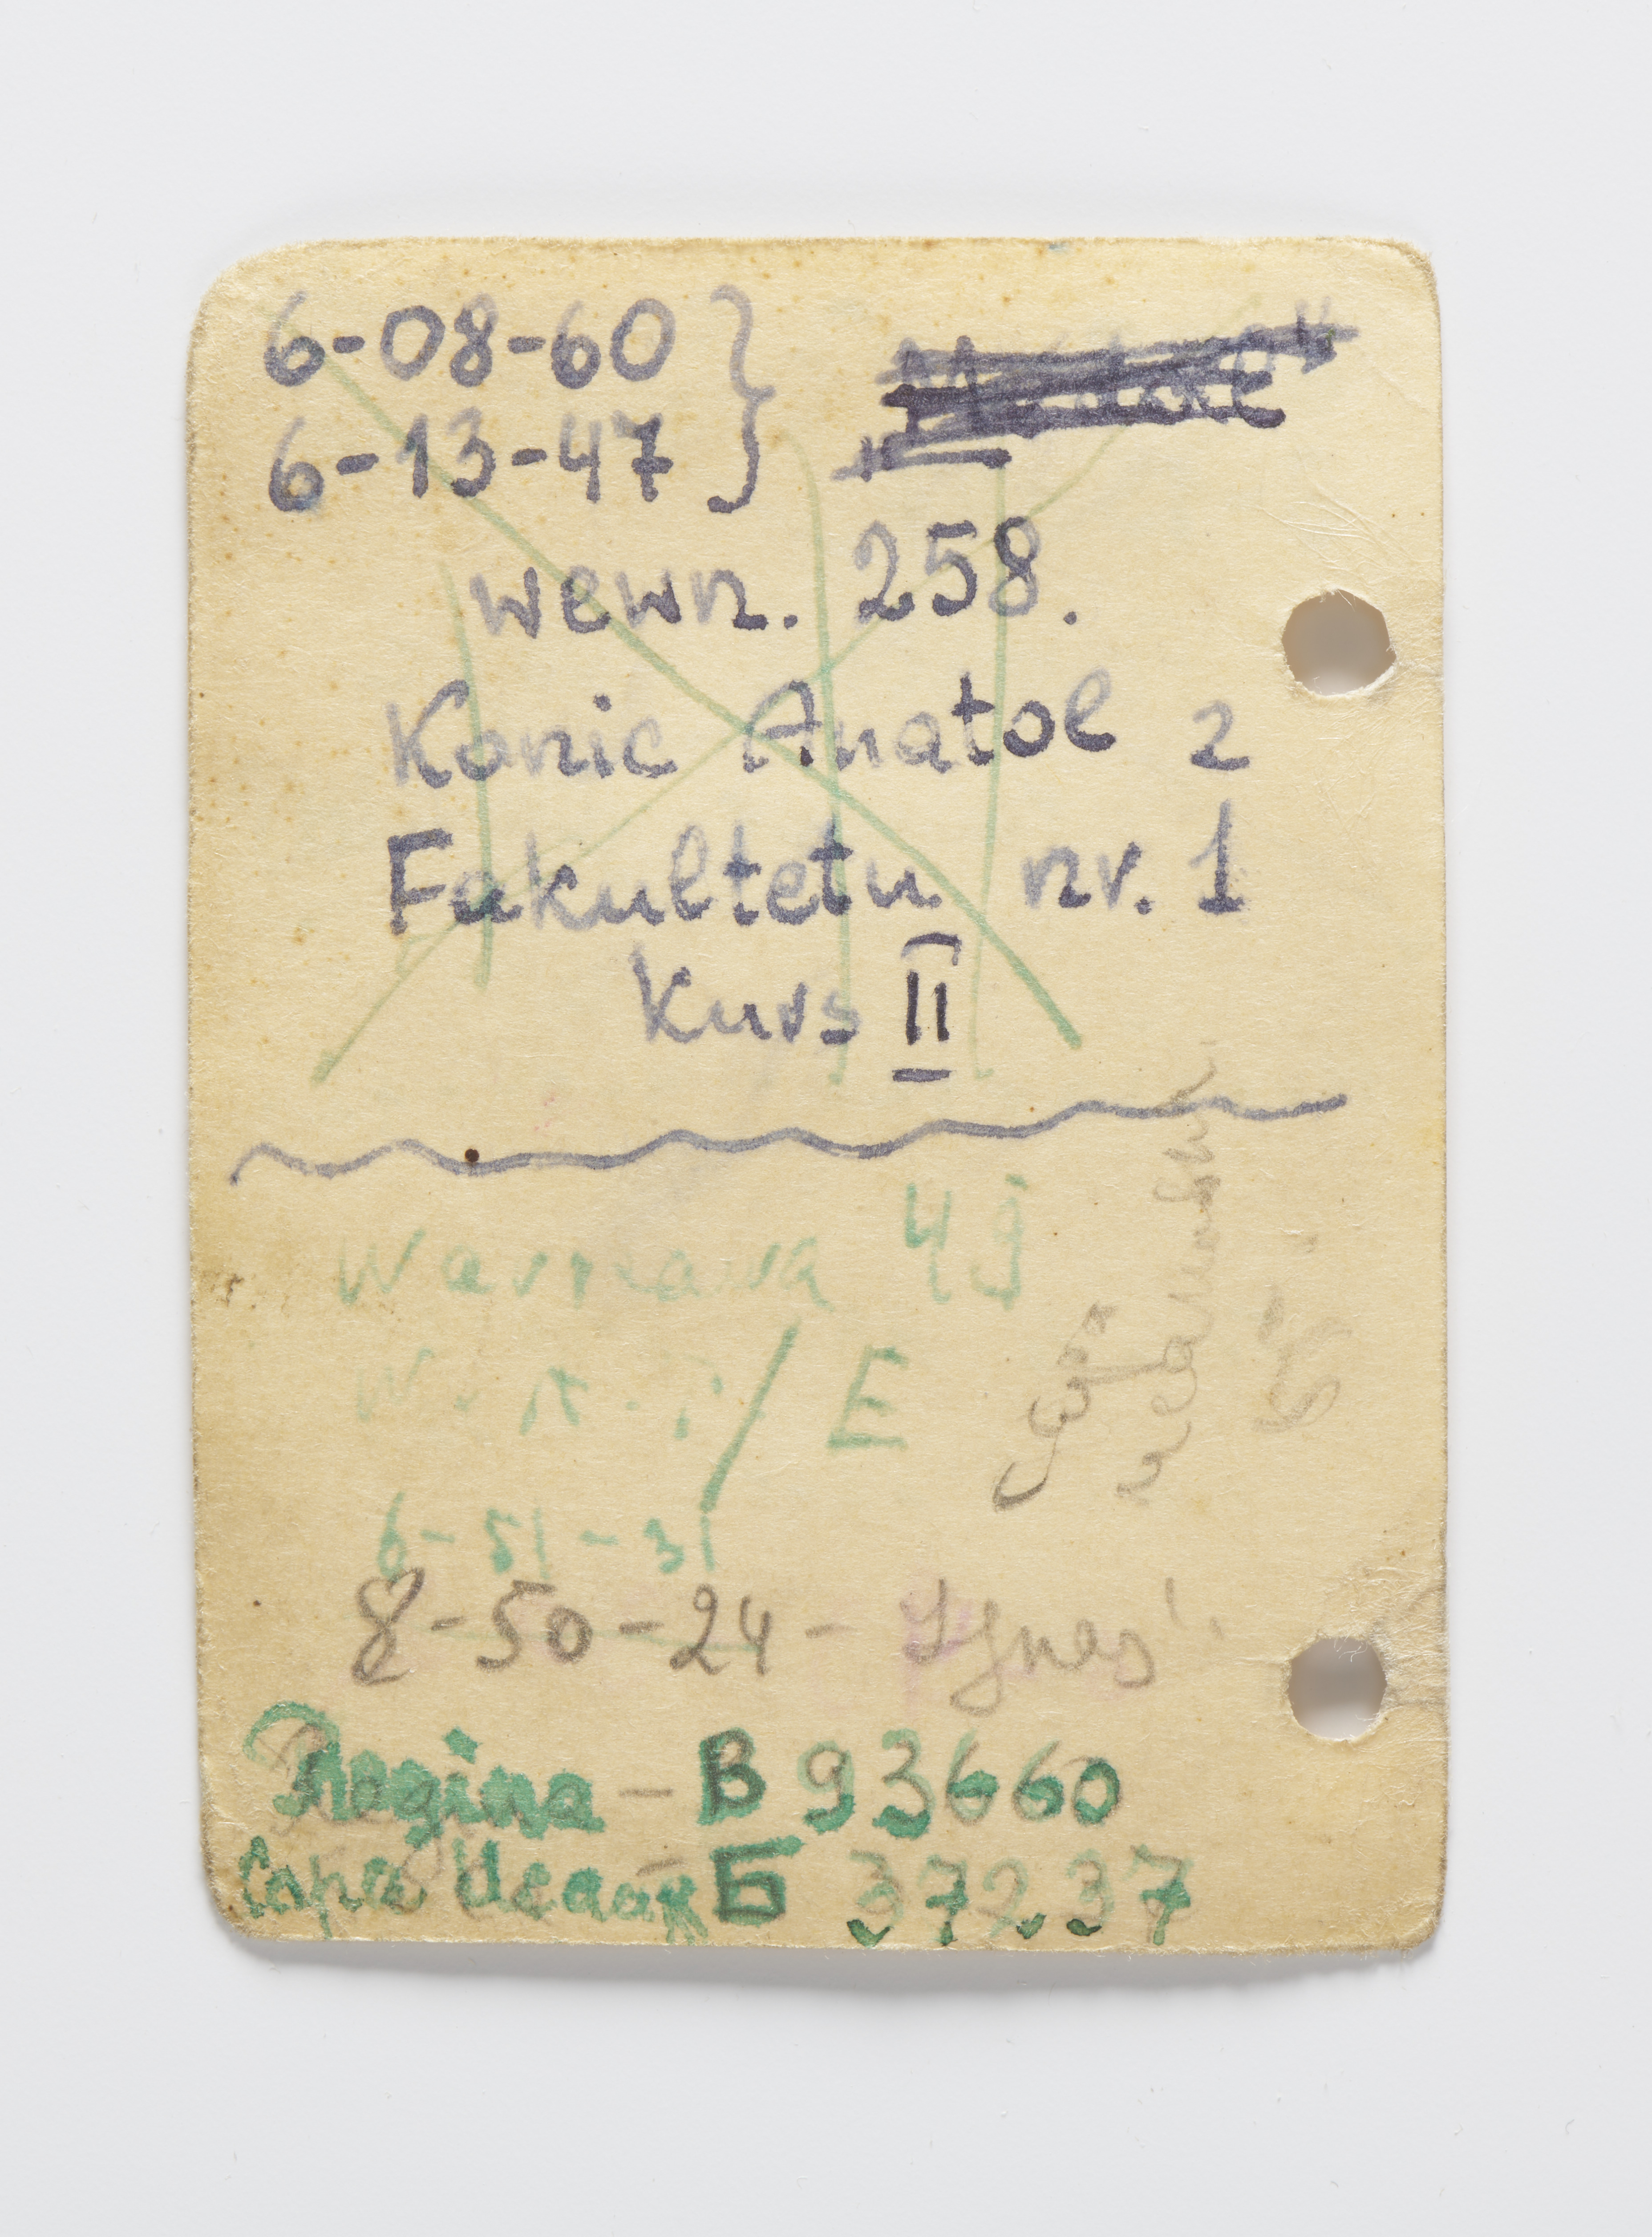 6-08-60 }
6-13-47
wewn. 258.
Konic Anatol z
Fakultetu nr. 1
Kurs II
Warszawa 49
W.A.T. / E
6-51-31
8-50-24 - Ignaś
Regina - B 93660
Сара Исаак - Б 37237